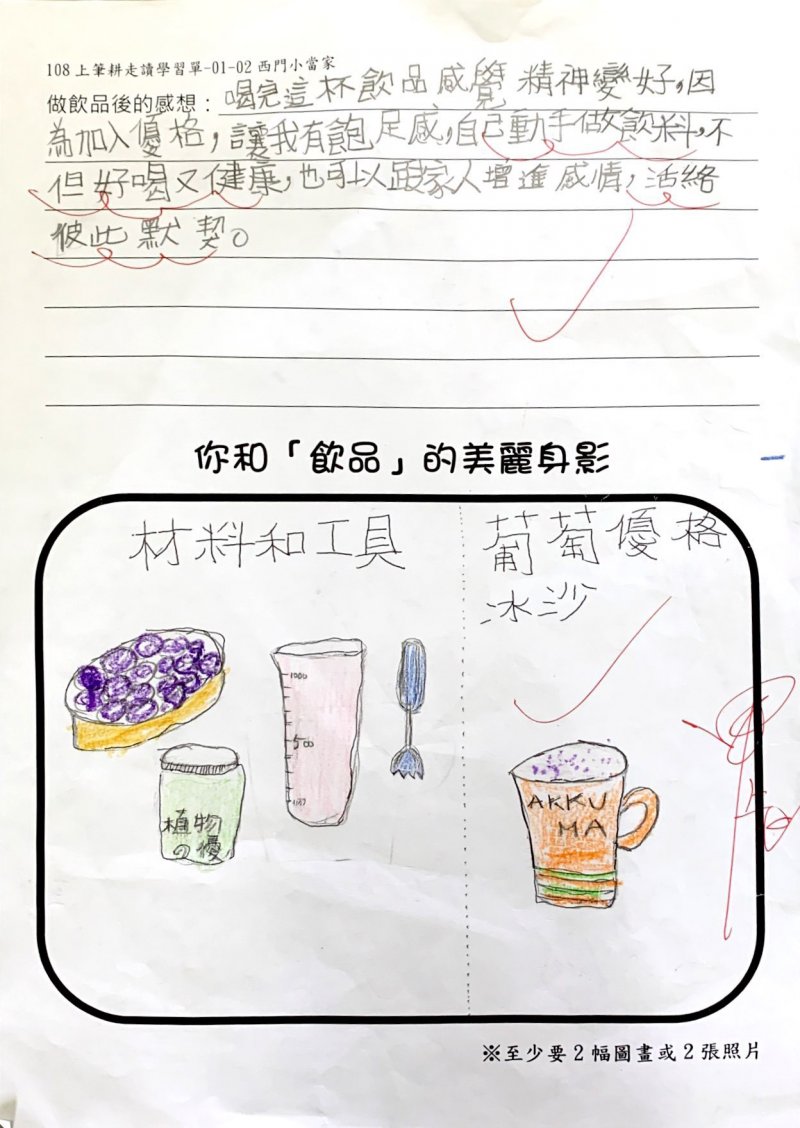 108上筆耕走讀學習單-01-02西門小當家
做飲品後的感想：喝完這杯飲品感覺精神變好，因
為加入優格，讓我有飽足感，自己動手做飲料，不
但好喝又健康，也可以跟家人增進感情，活絡
彼此默契。
你和「飲品」的美麗身影
材料和工具
葡萄優格
冰沙
1000
500
植物
の優
AKKU
MA
※至少要2幅圖畫或2張照片